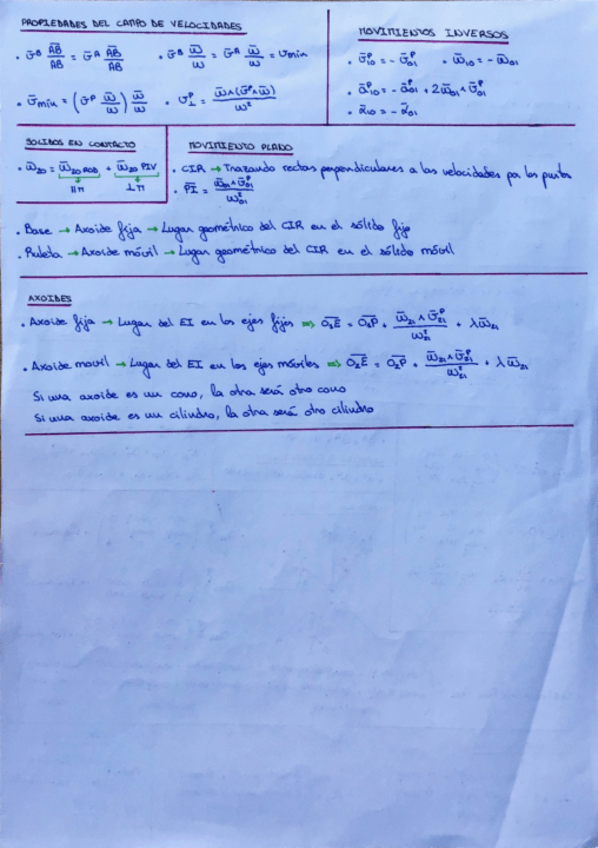 PROPIEDADES DEL CAMPO DE VELOCIDADES
· v̄ᴮ AB̄/AB = v̄ᴬ AB̄/AB · v̄ᴮ ω̄/ω = v̄ᴬ ω̄/ω = vmin
· v̄min = (v̄ᴾ ω̄/ω) ω̄/ω · v⊥ᴾ = ω̄∧(v̄ᴾ∧ω̄)/ω²
MOVIMIENTOS INVERSOS
· v̄₁₀ᴾ = - v̄₀₁ᴾ · ω̄₁₀ = - ω̄₀₁
· ā₁₀ᴾ = - ā₀₁ᴾ + 2ω̄₀₁∧v̄₀₁ᴾ
· ᾱ₁₀ = - ᾱ₀₁
SOLIDOS EN CONTACTO
· ω̄₂₀ = ω̄₂₀ ROD + ω̄₂₀ PIV
∥π ⊥π
MOVIMIENTO PLANO
· CIR → Trazando rectas perpendiculares a las velocidades por los puntos
· P̄Ī = ω̄₀₁∧v̄₀₁ᴾ/ω₀₁²
· Base → Axoide fija → Lugar geométrico del CIR en el sólido fijo
· Ruleta → Axoide móvil → Lugar geométrico del CIR en el sólido móvil
AXOIDES
· Axoide fija → Lugar del EI en los ejes fijos ⇒ O₁E = O₁P + ω̄₂₁∧v̄₂₁ᴾ/ω₂₁² + λω̄₂₁
· Axoide movil → Lugar del EI en los ejes móviles ⇒ O₂E = O₂P + ω̄₂₁∧v̄₂₁ᴾ/ω₂₁² + λω̄₂₁
Si una axoide es un cono, la otra será otro cono
Si una axoide es un cilindro, la otra será otro cilindro